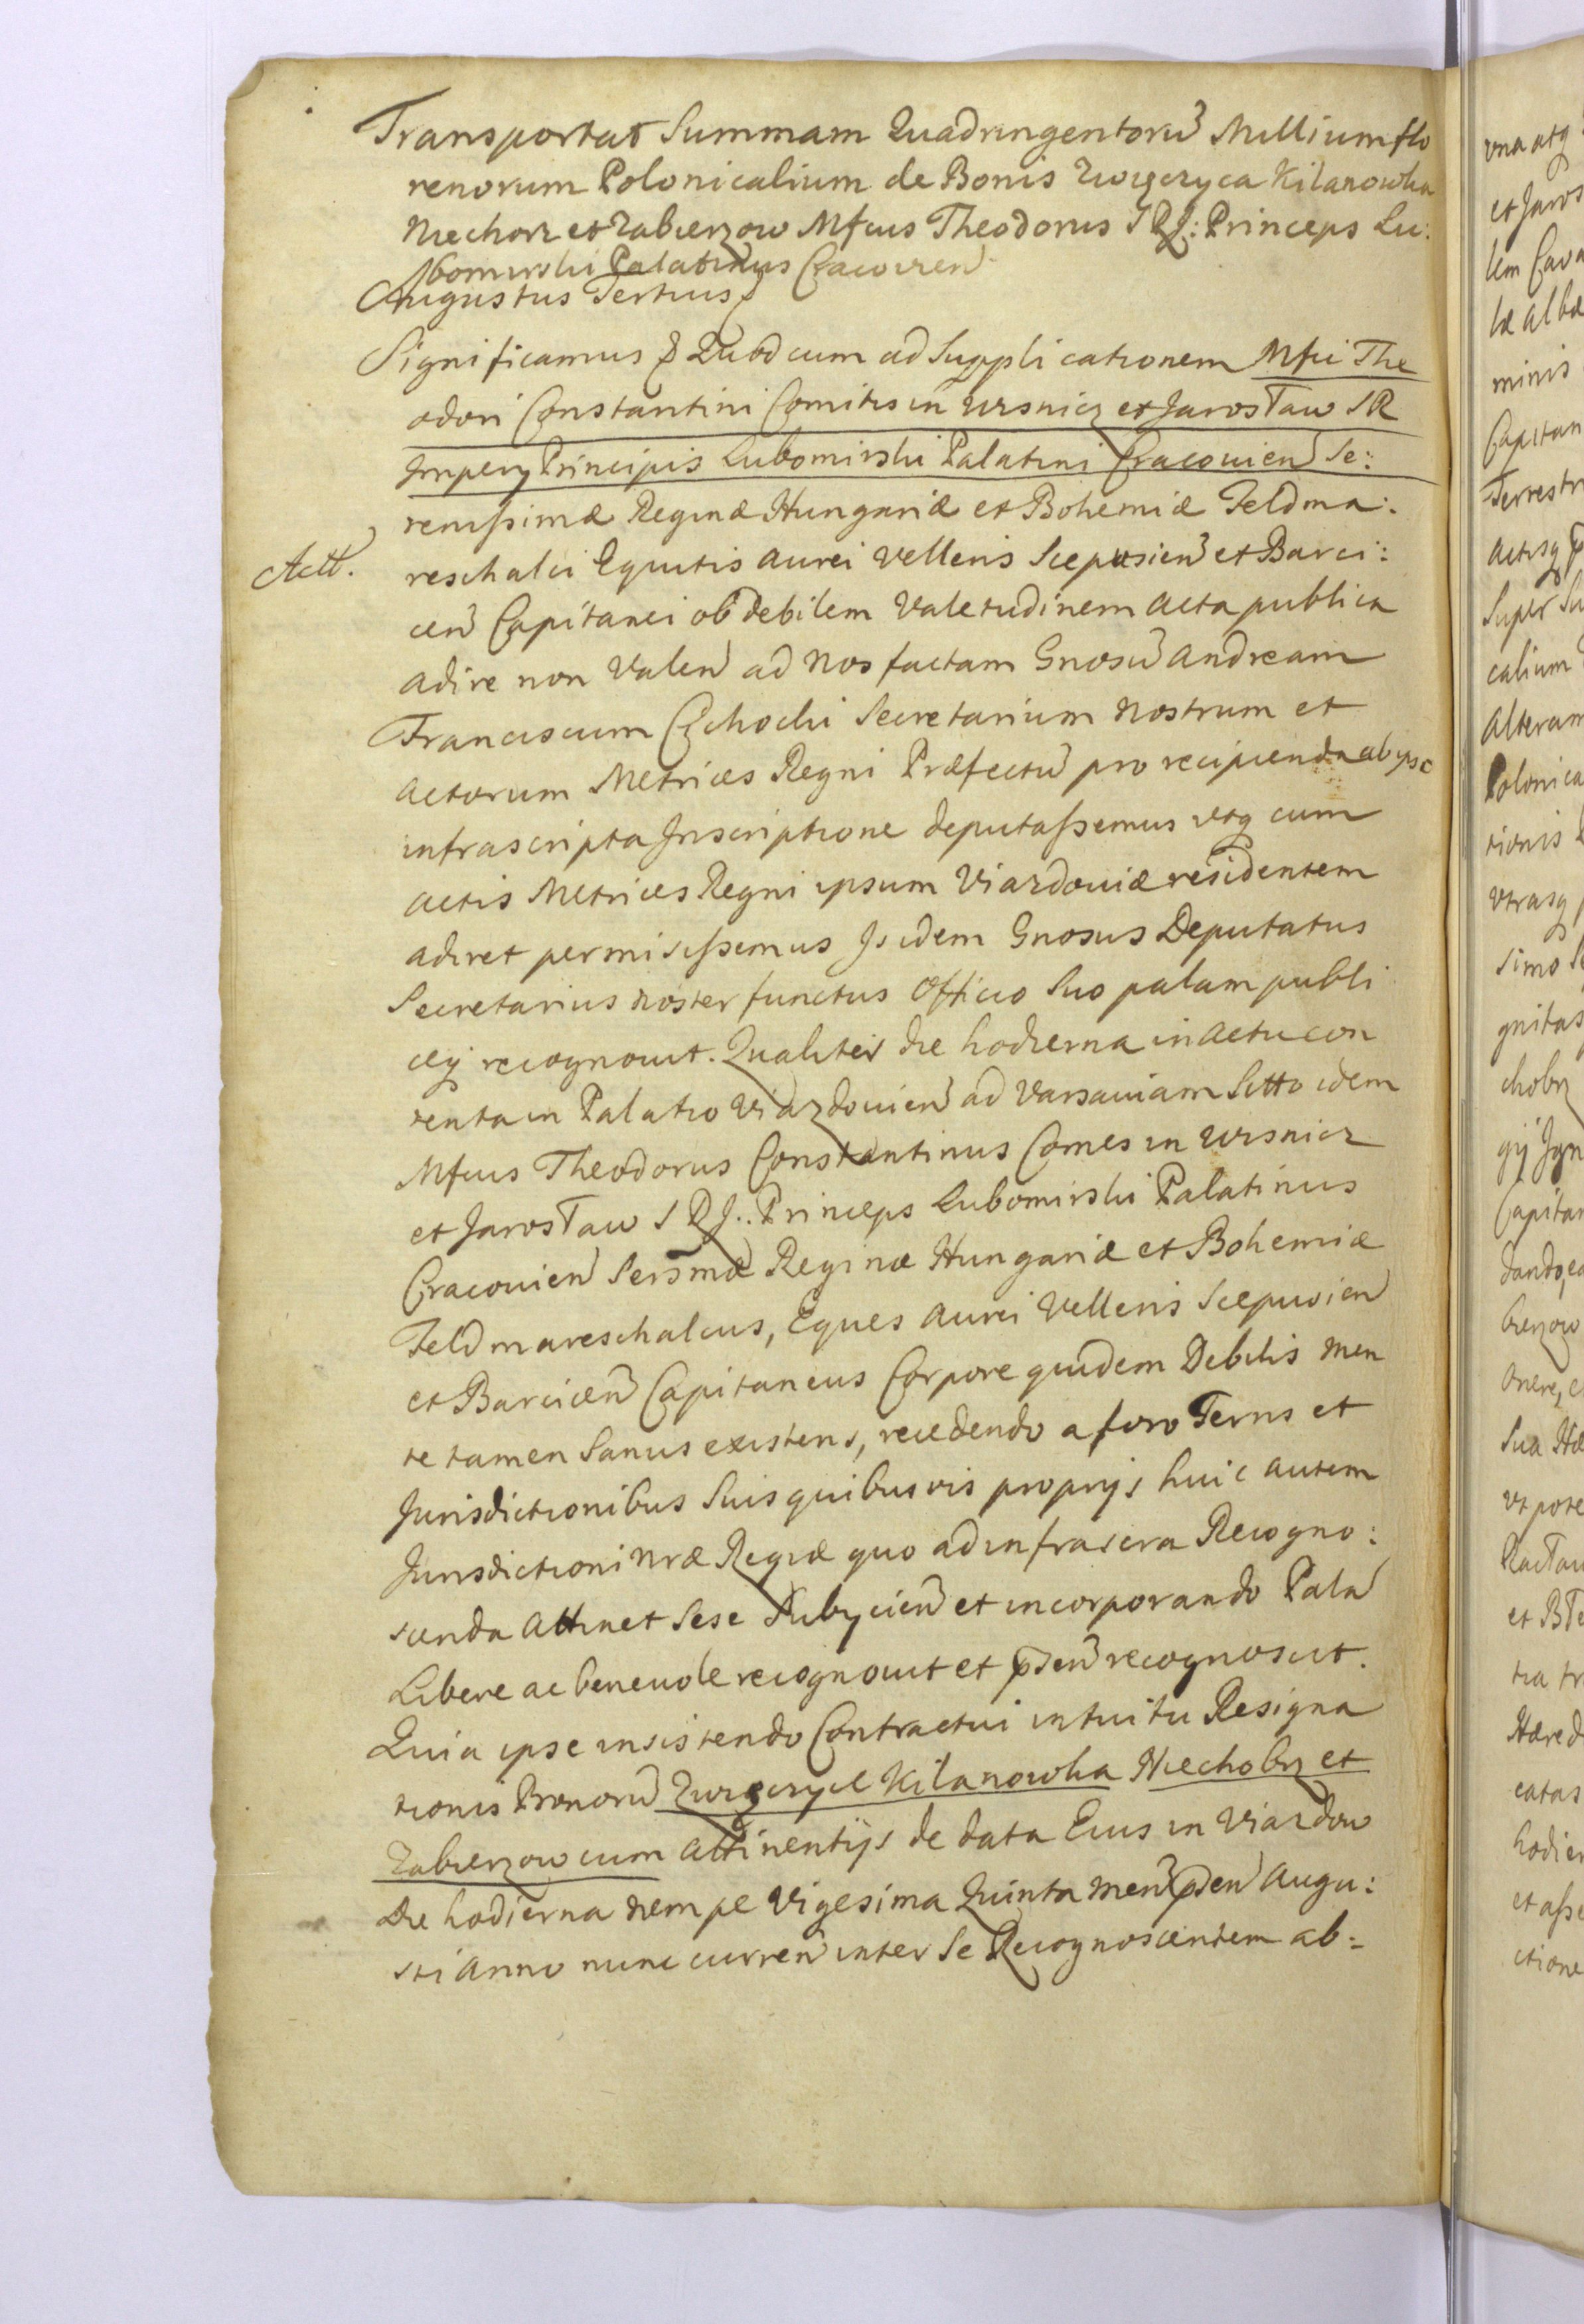 Transportat Summam Quadringentorũ Millium flo
renorum Polonicalium de Bonis Zwięczyca Kilanowka
Niechorz et Zabierzow Mfcus Theodorus S R J: Princeps Lu:
bomirski Palatinus Cracovien
Augustus Tertius
Significamus Quod cum ad Supplicationem Mfci The
odori Constantini Comitis in Wisnicz et Jarosław S R
Imperÿ Principis Lubomirski Palatini Cracovien Se:
renissimæ Reginæ Hungariæ et Bohemiæ Feldma:
Actt.
reschalci Equitis Aurei Velleris Scepusien et Barci:
cen Capitanei ob debilem Valetudinem Acta publica
adire non Valen ad Nos factam Gnosũ Andream
Franciscum Cichocki Secretarium Nostrum et
Actorum Metrices Regni Præfectũ pro recipienda ab ipso
infrascripta Inscriptione deputassemus utq cum
Actis Metrices Regni ipsum Viazdoviæ residentem
adiret permisissemus Isidem Gnosus Deputatus
Secretarius Noster functus Officio Suo palam publi
cey recognovit. Qualiter die hodierna in Actu con
tenta in Palatio Viazdovien ad Varsaviam Sitto idem
Mfcus Theodorus Constantinus Comes in Wisnicz
et Jarosław S R J.. Princeps Lubomirski Palatinus
Cracovien Serm̃æ Reginæ Hungariæ et Bohemiæ
Feldmareschalcus, Eques Aurei Velleris Scepusien
et Barcicen Capitaneus Corpore quidem Debilis Men
te tamen Sanus existens, recedendo a foro Terris et
Jurisdictionibus Suis quibusvis proprijs huic autem
Jurisdictioni Nræ Regiæ quo ad infrascra Recogno:
scenda Attinet Sese Subycien et incorporando Palã
Libere ac benevole recognovit et pñsen recognoscit.
Quia ipse insistendo Contractui intuitu Resigna
tionis Bonorũ Zwięczyce Kilanowka Niechobrz et
Zabierzow cum Attinentijs de data Eius in Viazdow
Die hodierna nempe Vigesima Quinta Men pñsen Augu:
sti Anno nunc curren inter Se Recognoscentem ab: